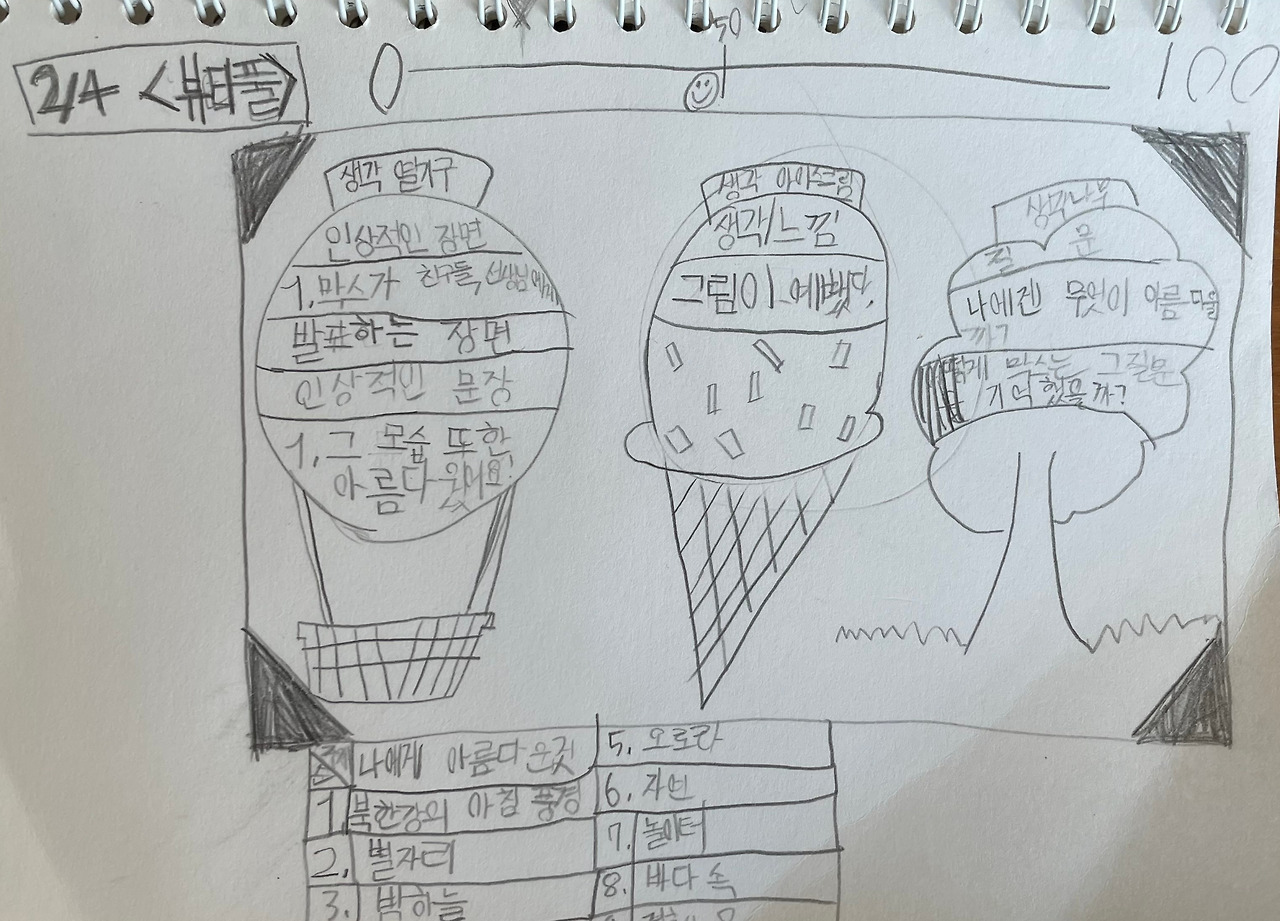 2/4 <뷰티풀>
0 50 100
생각 열기구
인상적인 장면
1. 막스가 친구들, 선생님에게
발표하는 장면
인상적인 문장
1. 그 모습 또한
아름다웠어요!
생각 아이스크림
생각/느낌
그림이 예뻤다.
생각나무
질문
나에겐 무엇이 아름다울
까?
어떻게 막스는 그 질문
기억했을까?
나에게 아름다운것
1 북한강의 아침 풍경
2. 별자리
3. 밤하늘
5. 오로라
6. 자연
7. 놀이터
8. 바다 속